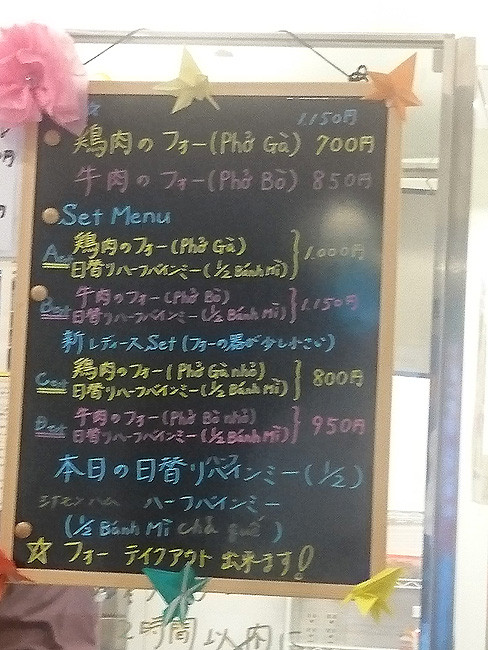 1,150円
鶏肉のフォー(Phở Gà) 700円
牛肉のフォー(Phở Bò) 850円
Set Menu
A set 鶏肉のフォー(Phở Gà)
日替りハーフバインミー(½ Bánh Mì) 1,000円
B set 牛肉のフォー(Phở Bò)
日替りハーフバインミー(½ Bánh Mì) 1,150円
新レディースSet(フォーの器が少し小さい)
C set 鶏肉のフォー(Phở Gà nhỏ)
日替りハーフバインミー(½ Bánh Mì) 800円
D set 牛肉のフォー(Phở Bò nhỏ)
日替りハーフバインミー(½ Bánh Mì) 950円
本日の日替りハーフバインミー(½)
シナモンハム ハーフバインミー
(½ Bánh Mì chả quế)
☆ フォー テイクアウト 出来ます!
2時間以内に